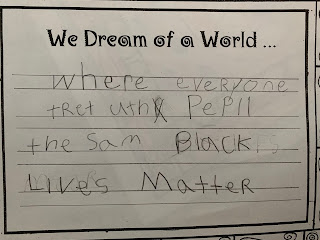 We Dream of a World ...
where everyone
tret uthr Pepll
the sam Black
Lives Matter